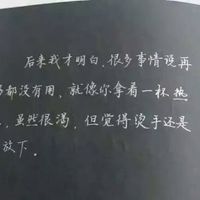 后来我才明白,很多事情说再
都没有用,就像你拿着一杯热
,虽然很渴,但觉得烫手还是
放下。